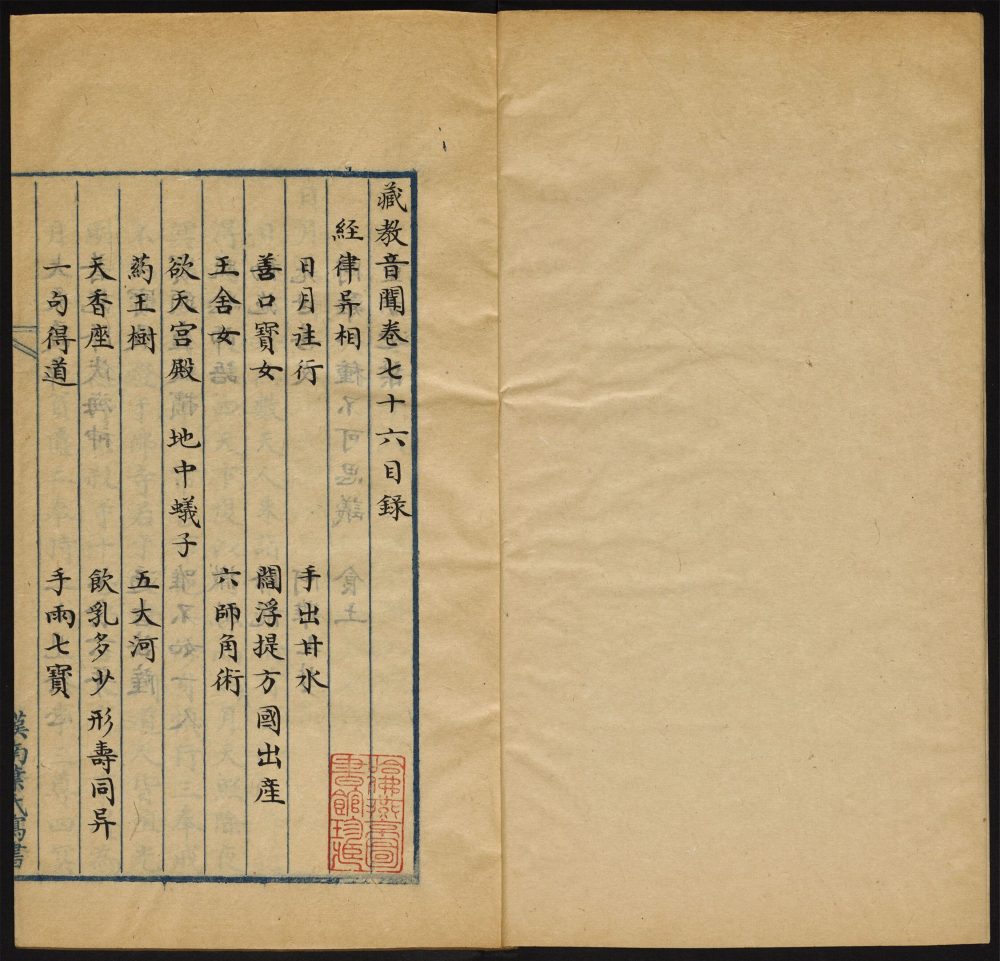 藏教音聞卷七十六目錄
経律异相
日月詿行 手出甘水
善口寶女 閻浮提方國出産
王舍女 六師角術
欲天宮殿 地中蟻子
葯王樹 五大河
天香座 飲乳多少形壽同异
一句得道 手雨七寶
哈佛燕京圖
書館珍藏
漢南葉氏寫書